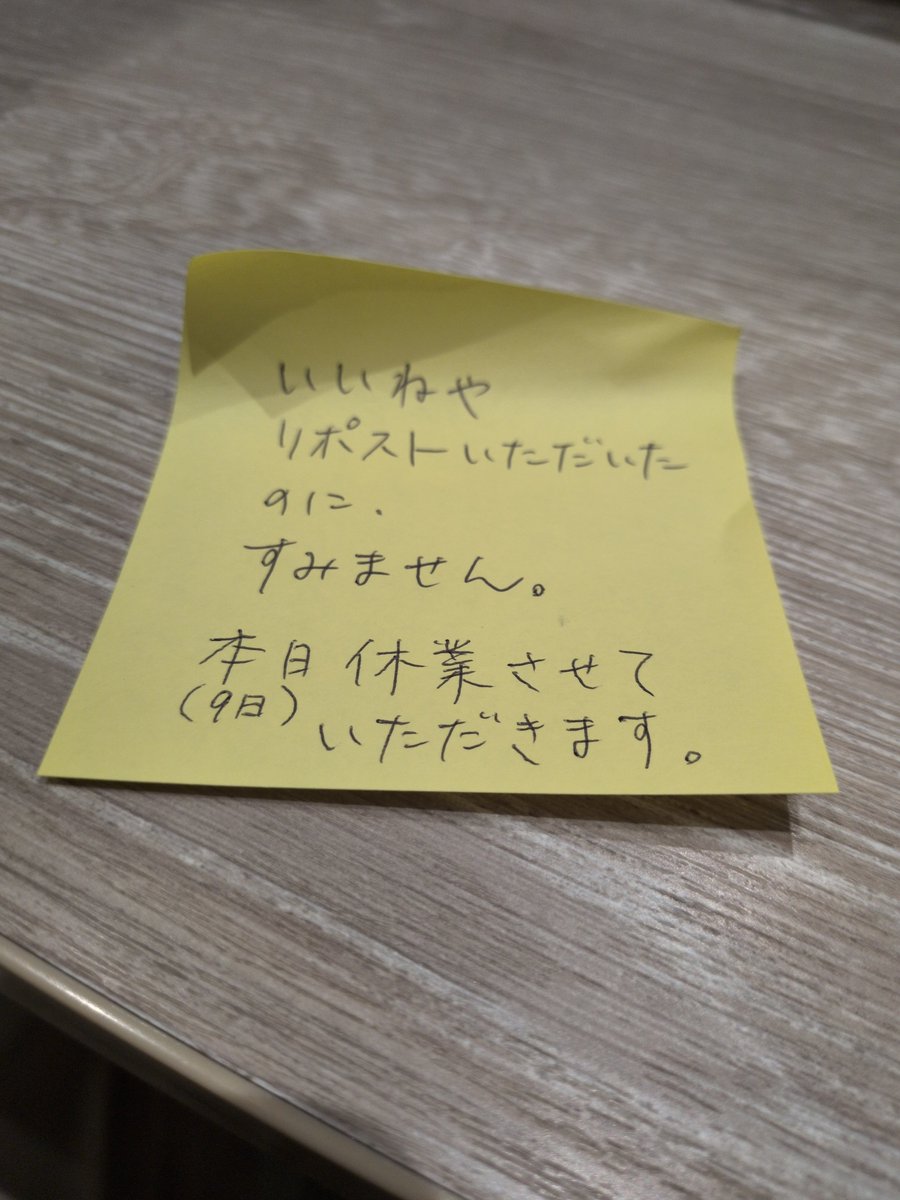 いいねや
リポストいただいた
のに、
すみません。
本日 休業させて
(9日)
いただきます。